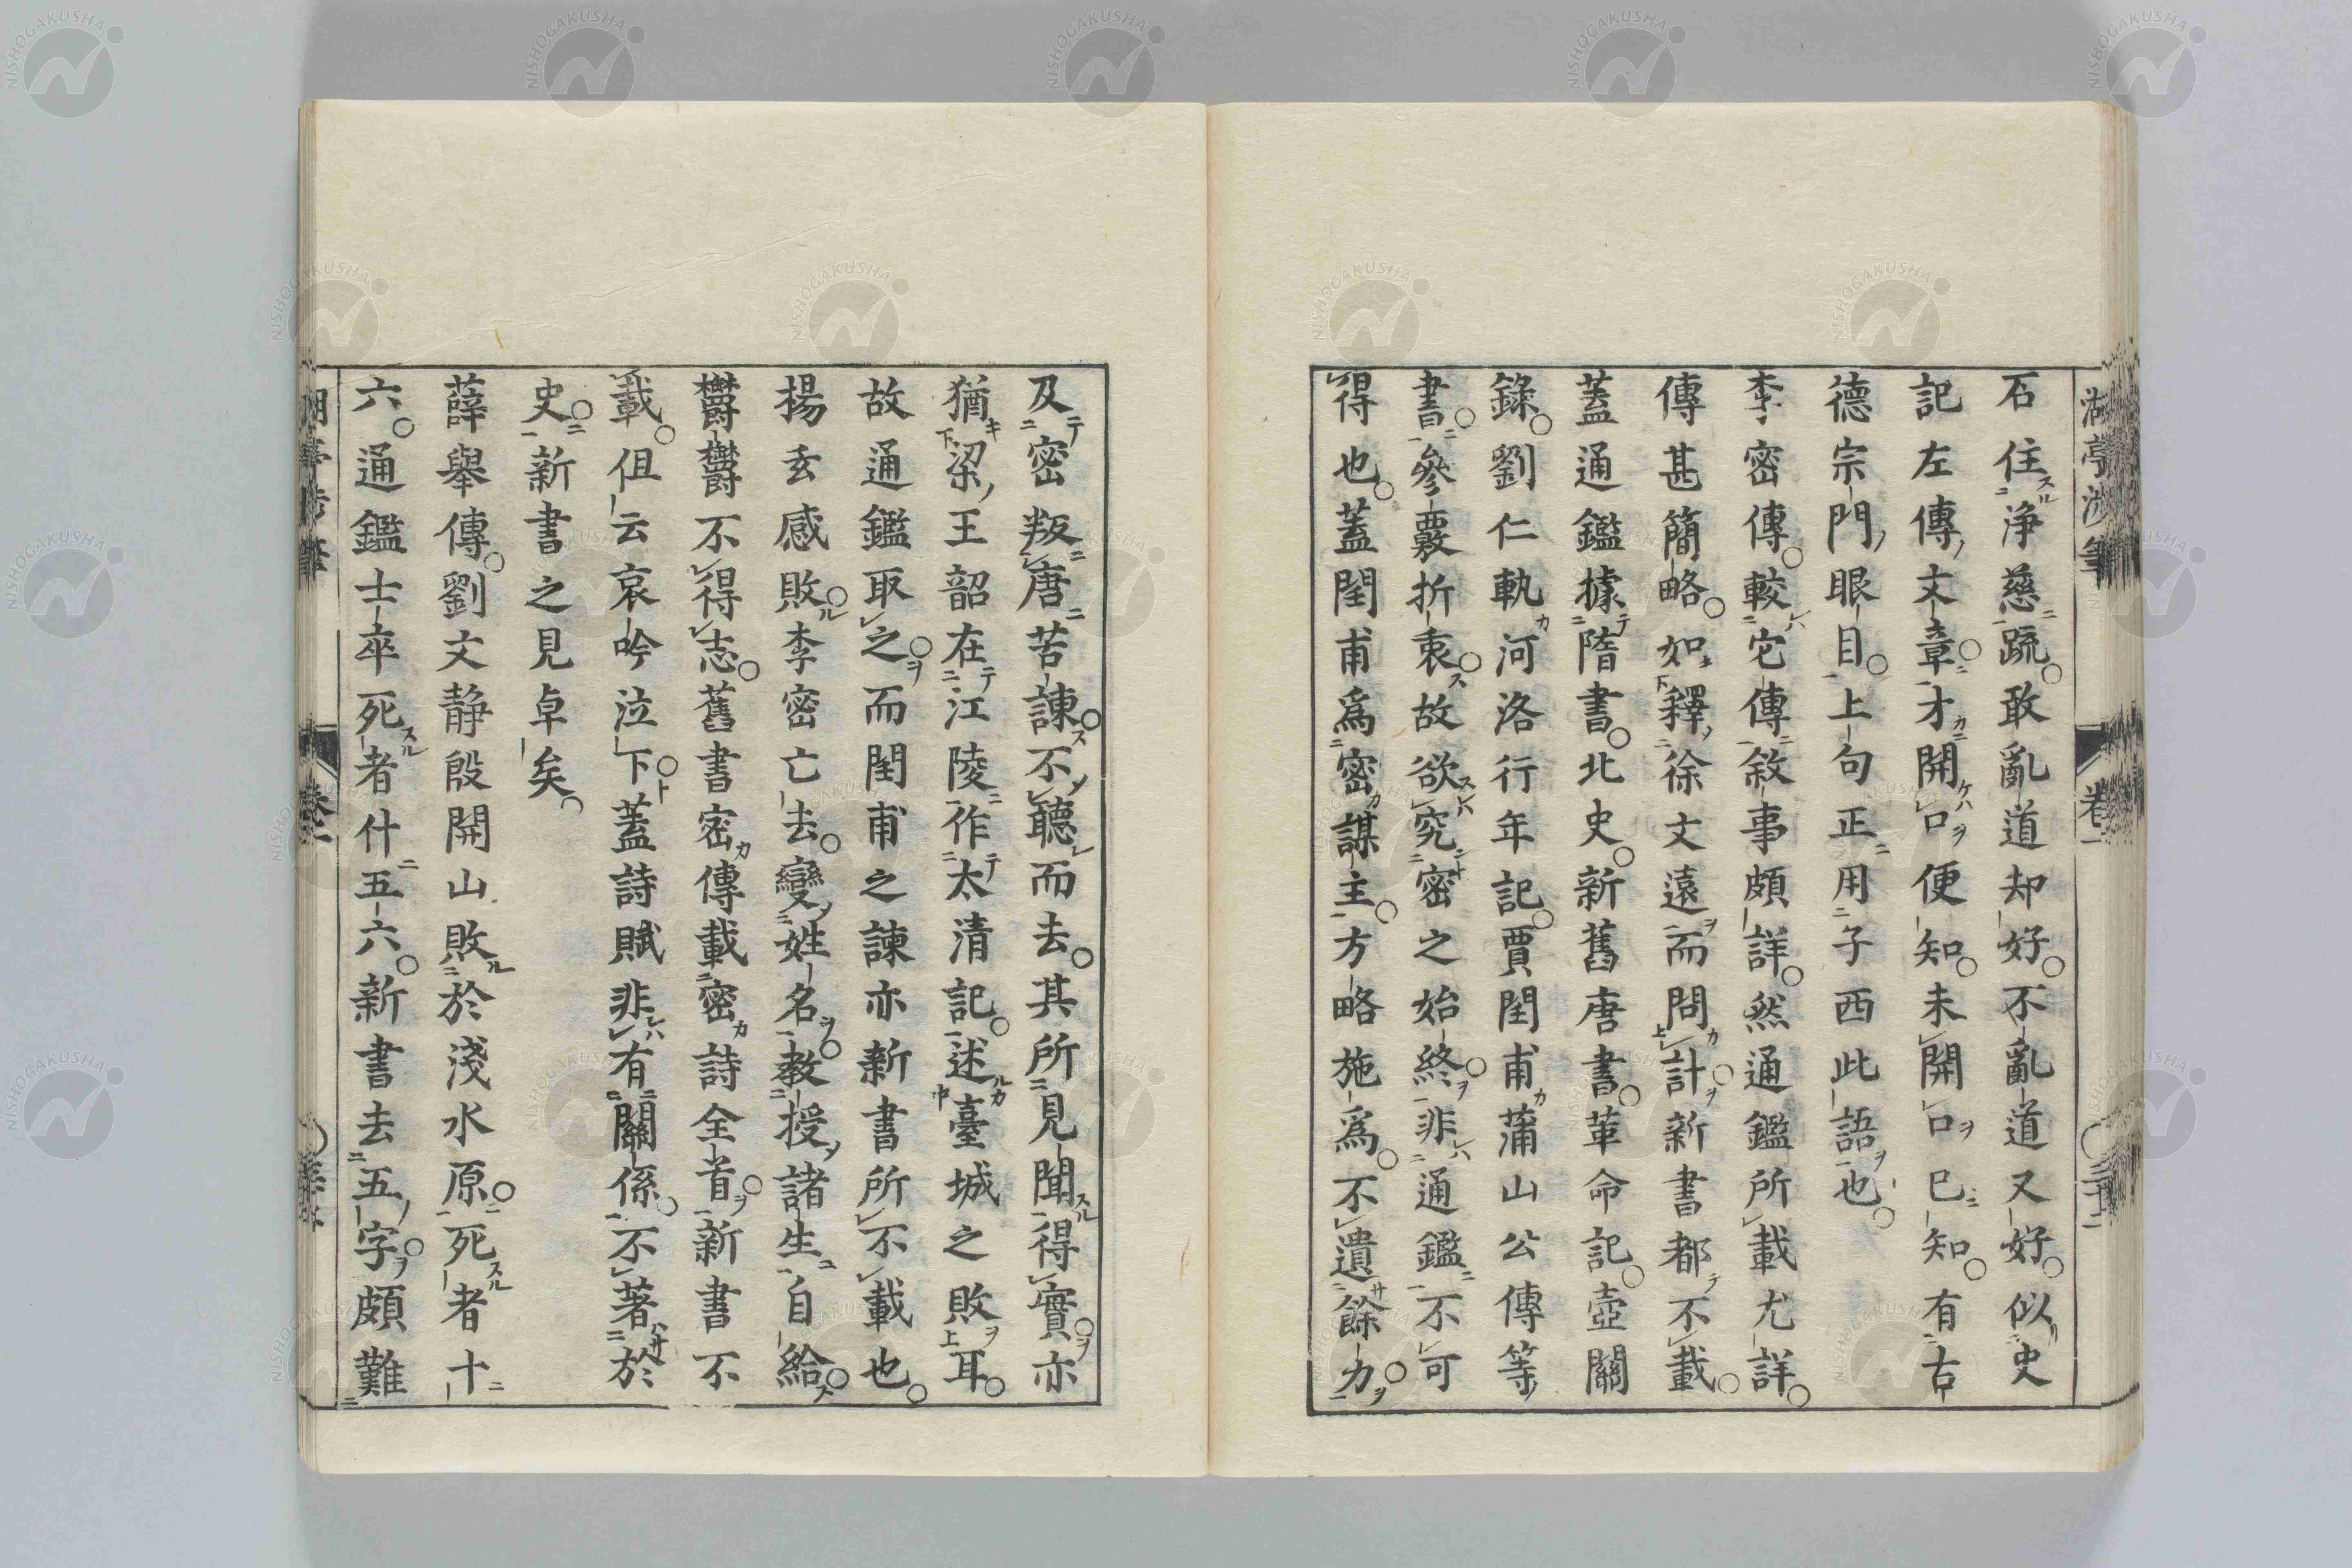 石住淨慈疏敢亂道却好不亂道又好似史
記左傳文章才開口便知未開口已知有古
德宗門眼目上句正用子西此語也
李密傳較它傳敘事頗詳然通鑑所載尤詳
傳甚簡略如釋徐文遠而問計新書都不載
蓋通鑑據隋書北史新舊唐書革命記壺關
錄劉仁軌河洛行年記賈閏甫蒲山公傳等
書參覈折衷故欲究密之始終非通鑑不可
得也蓋閏甫爲密謀主方略施爲不遺餘力
及密叛唐苦諫不聽而去其所見聞得實亦
猶梁王韶在江陵作太清記述臺城之敗耳
故通鑑取之而閏甫之諫亦新書所不載也
揚玄感敗李密亡去變姓名教授諸生自給
欝欝不得志舊書密傳載密詩全首新書不
載但云哀吟泣下蓋詩賦非有關係不著於
史新書之見卓矣
薛舉傳劉文静殷開山敗於淺水原死者十
六通鑑士卒死者什五六新書去五字頗難